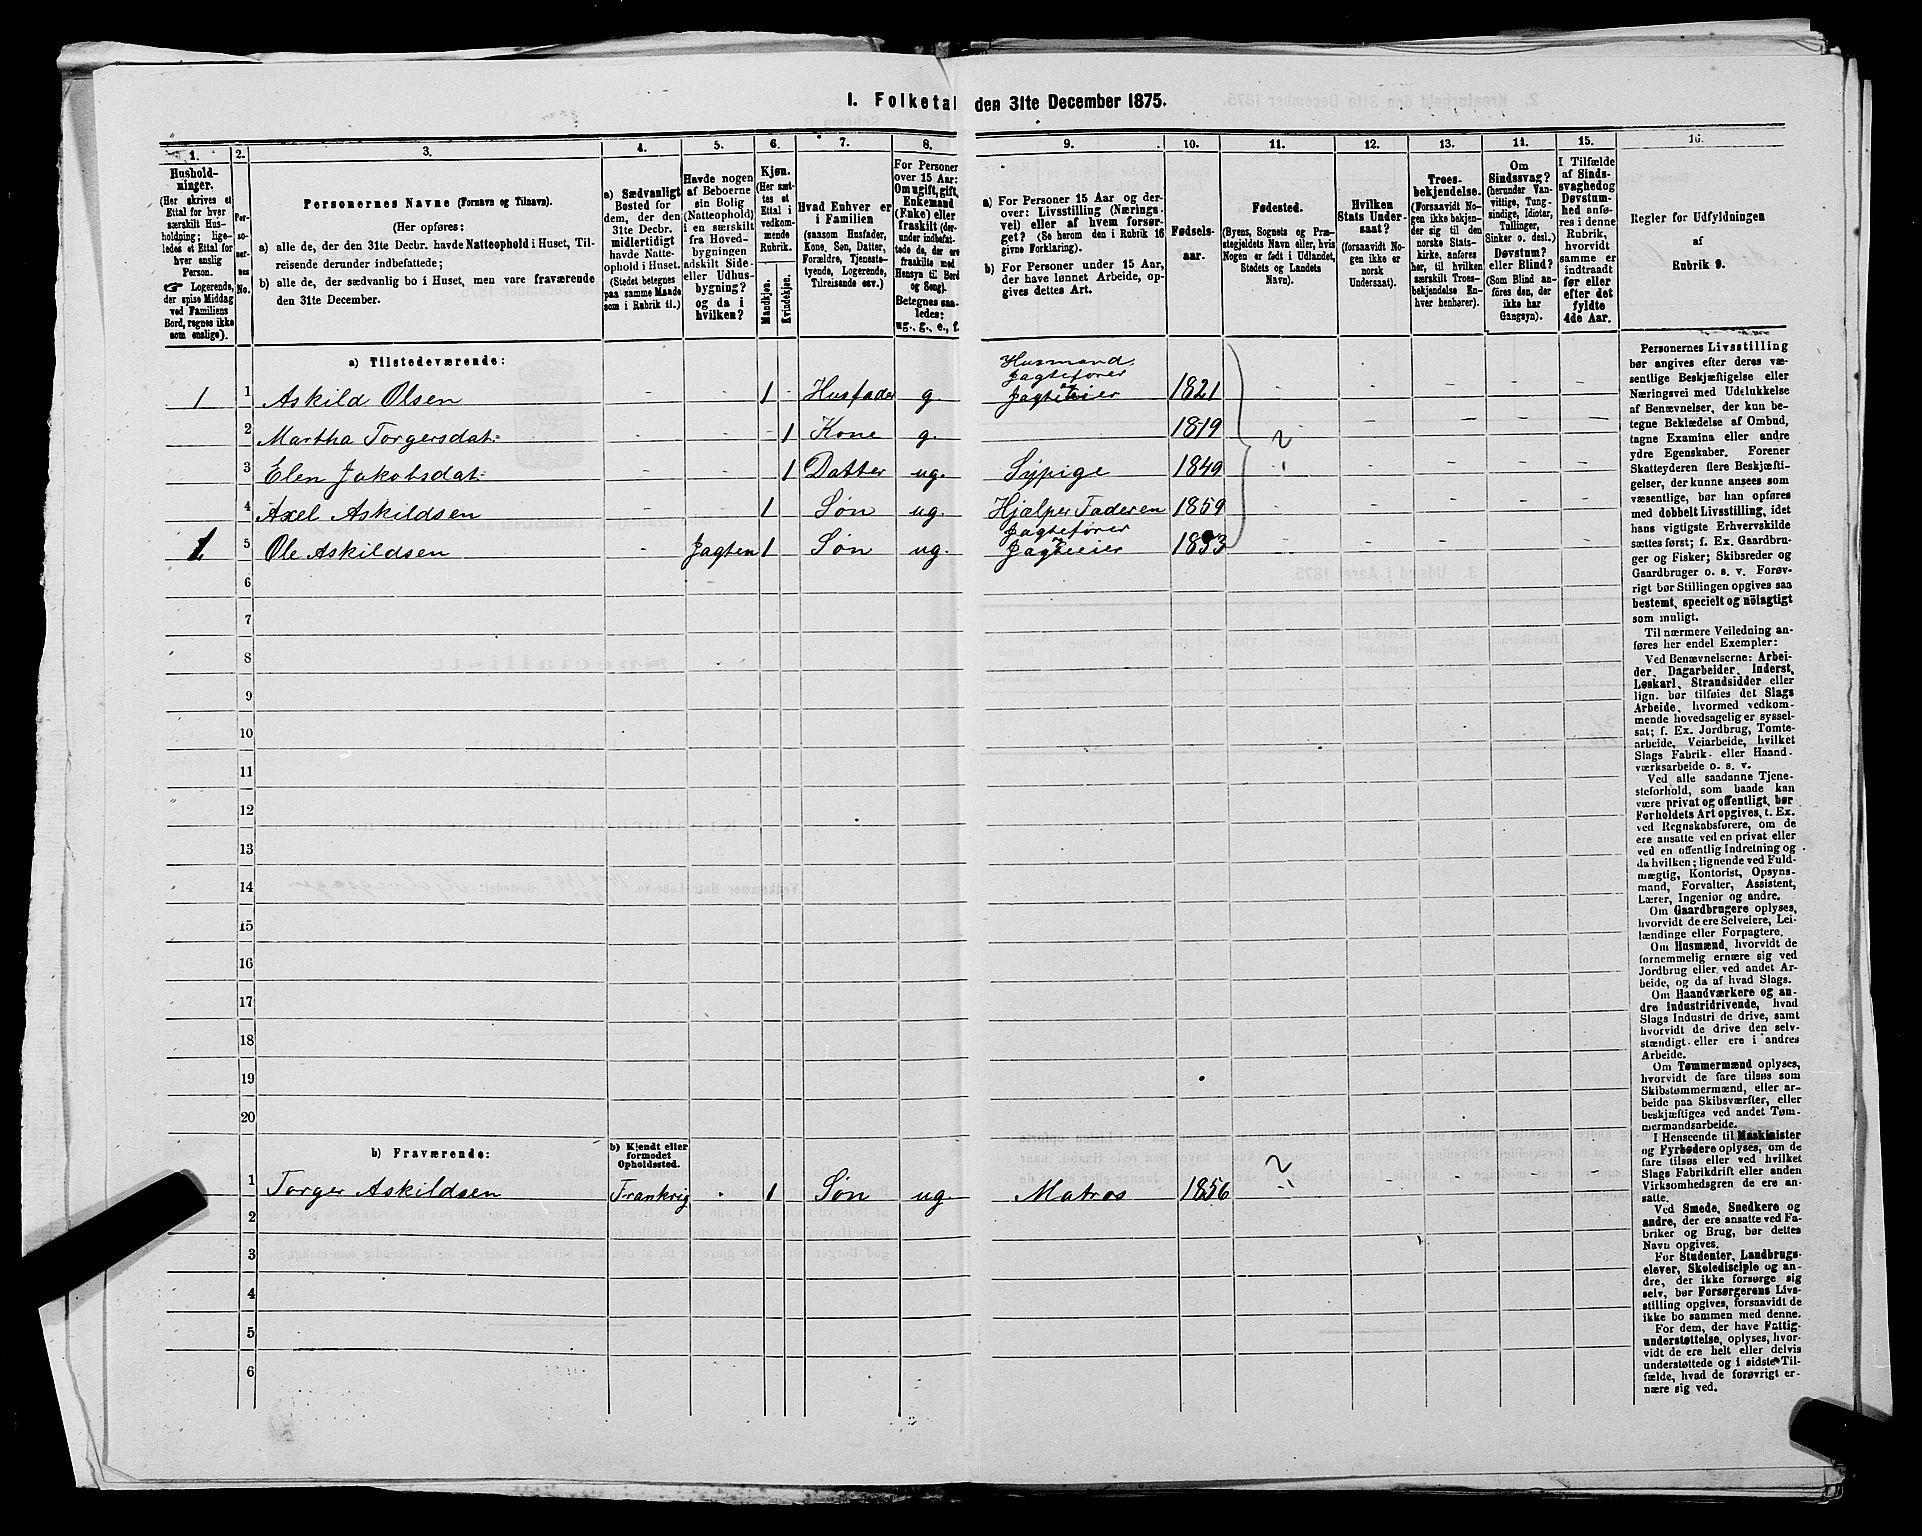 I. Folketal den 31te December 1875.
1. 2. 3. 4. 5. 6. 7. 8. 9. 10. 11. 12. 13. 14. 15. 16.
Hushold-
ninger.
(Her skrives et
Ettal for hver
særskilt Hus-
holdning; lige-
ledes et Ettal for
hver enslig
Person.
☛ Logerende,
der spise Middag
ved Familiens
Bord, regnes ikke
som enslige).
Per-
so-
ner-
nes
No.
Personernes Navne (Fornavn og Tilnavn).
(Her opføres:
a) alle de, der den 31te Decbr. havde Natteophold i Huset, Til-
reisende derunder indbefattede;
b) alle de, der sædvanlig bo i Huset, men vare fraværende
den 31te December.
a) Sædvanligt
Bosted for
dem, der den
31te Decbr.
midlertidigt
havde Natte-
ophold i Huset.
(Stedet betegnes
paa samme Maade
som i Rubrik 11.)
Havde nogen
af Beboerne
sin Bolig
(Natteophold)
i en særskilt
fra Hoved-
bygningen
adskilt Side-
eller Udhus-
bygning?
og da i
hvilken?
Kjøn.
(Her sæt-
tes et
Ettal i
vedkom-
mende
Rubrik.
Mandkjøn.
Kvindekjøn.
Hvad Enhver er
i Familien
(saasom Husfader,
Kone, Søn, Datter,
Forældre, Tjeneste-
tyende, Logerende,
Tilreisende osv.)
For Personer
over 15 Aar:
Om ugift, gift,
Enkemand
(Enke) eller
fraskilt (der-
under indbefat-
tede de, der ere
fraskilte med
Hensyn til Bord
og Seng).
Betegnes saa-
ledes:
ug., g., e., f.
a) For Personer 15 Aar og der-
over: Livsstilling (Nærings-
vei) eller af hvem forsør-
get? (Se herom den i Rubrik 16
givne Forklaring).
b) For Personer under 15 Aar,
der have lønnet Arbeide, op-
gives dettes Art.
Fødsels-
aar.
Fødested.
(Byens, Sognets og Præ-
stegjeldets Navn eller, hvis
Nogen er født i Udlandet,
Stedets og Landets
Navn).
Hvilken
Stats Under-
saat?
(forsaavidt No-
gen ikke er
norsk
Undersaat).
Troes-
bekjendelse.
(Forsaavidt No-
gen ikke bekjen-
der sig til den
norske Stats-
kirke, anføres
her, til hvilken
særskilt Troes-
bekjendelse En-
hver henhører).
Om
Sindssvag?
(herunder Van-
vittige, Tung-
sindige, Idioter,
Tullinger,
Sinker o. desl.)
Døvstum?
eller Blind?
(Som Blind an-
føres den, der
ikke har
Gangsyn).
I Tilfælde
af Sinds-
svaghed og
Døvstum-
hed anfø-
res i denne
Rubrik,
hvorvidt
samme er
indtraadt
før eller
efter det
fyldte
4de Aar.
Regler for Udfyldningen
af
Rubrik 9.
a) Tilstedeværende:
Husmand
Jagtefører
1 1 Askild Olsen 1 Husfader g. Jagteeier 1821
2 Martha Torgersdat: 1 Kone g. 1819
3 Elen Jakobsdat: 1 Datter ug. Sypige 1849
4 Axel Askildsen 1 Søn ug. Hjælper Faderen 1859
Jagtefører
5 Ole Askildsen Jagten 1 Søn ug. Jagteeier 1853
6
7
8
9
10
11
12
13
14
15
16
17
18
19
20
b) Fraværende:
b) Kjendt eller
formodet
Opholdssted.
1 Torger Askildsen Frankrig 1 Søn ug. Matros 1856
2
3
4
5
6
Personernes Livsstilling
bør angives efter deres væ-
sentlige Beskjæftigelse eller
Næringsvei med Udelukkelse
af Benævnelser, der kun be-
tegne Beklædelse af Ombud,
tagne Examina eller andre
ydre Egenskaber. Forener
Skatteyderen flere Beskjæfti-
gelser, der kunne ansees som
væsentlige, bør han opføres
med dobbelt Livsstilling, idet
hans vigtigste Erhvervskilde
sættes først; f. Ex. Gaardbru-
ger og Fisker; Skibsreder og
Gaardbruger o. s. v. Forøv-
rigt bør Stillingen opgives saa
bestemt, specielt og nöiagtigt
som muligt.
Til nærmere Veiledning an-
føres her endel Exempler:
Ved Benævnelserne: Arbei-
der, Dagarbeider, Inderst,
Løskarl, Strandsidder eller
lign. bør tilføies det Slags
Arbeide, hvormed vedkom-
mende hovedsagelig er syssel-
sat; f. Ex. Jordbrug, Tomte-
arbeide, Veiarbeide, hvilket
Slags Fabrik- eller Haand-
værksarbeide o. s. v.
Ved alle saadanne Tjene-
steforhold, som baade kan
være privat og offentligt, bør
Forholdets Art opgives, t. Ex.
ved Regnskabsførere, om de
ere ansatte ved en privat eller
ved en offentlig Indretning og
da hvilken; lignende ved Fuld-
mægtig, Kontorist, Opsyns-
mand, Forvalter, Assistent,
Lærer, Ingeniør og andre.
Om Gaardbrugere oplyses,
hvorvidt de ere Selveiere, Lei-
lændinge eller Forpagtere.
Om Husmænd, hvorvidt de
fornemmelig ernære sig ved
Jordbrug eller ved andet Ar-
beide, og da af hvad Slags.
Om Haandværkere og an-
dre Industridrivende, hvad
Slags Industri de drive, samt
hvorvidt de drive den selv-
stændigt eller ere i andres
Arbeide.
Om Tømmermænd oplyses,
hvorvidt de fare tilsøs som
Skibstømmermænd, eller ar-
beide paa Skibsværfter, eller
beskjæftiges ved andet Tøm-
mermandsarbeide.
I Henseende til Maskinister
og Fyrbødere oplyses, om de
fare tilsøs eller ved hvilket
Slags Fabrikdrift eller anden
Virksomhedsgren de ere an-
satte.
Ved Smede, Snedkere og
andre, der ere ansatte ved Fa-
briker og Brug, bør dettes
Navn opgives.
For Studenter, Landbrugs-
elever, Skoledisciple og an-
dre, der ikke forsørge sig
selv, bør Forsørgerens Livs-
stilling opgives, forsaavidt de
ikke bo sammen med denne.
For dem, der have Fattig-
understøttelse, oplyses, hvor-
vidt de ere helt eller delvis
understøttede og i sidste Til-
fælde, hvad de forøvrigt er-
nære sig ved.